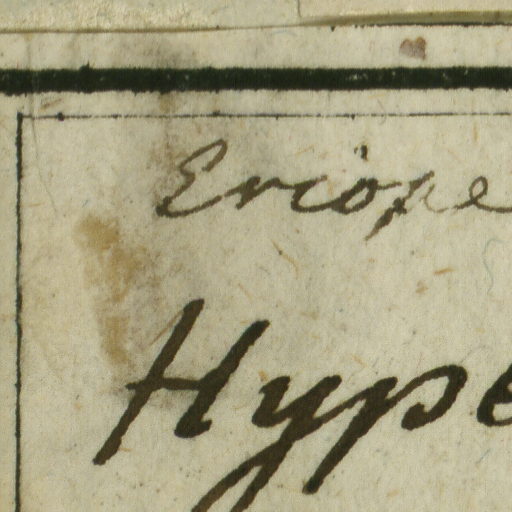 Eriope
Hype